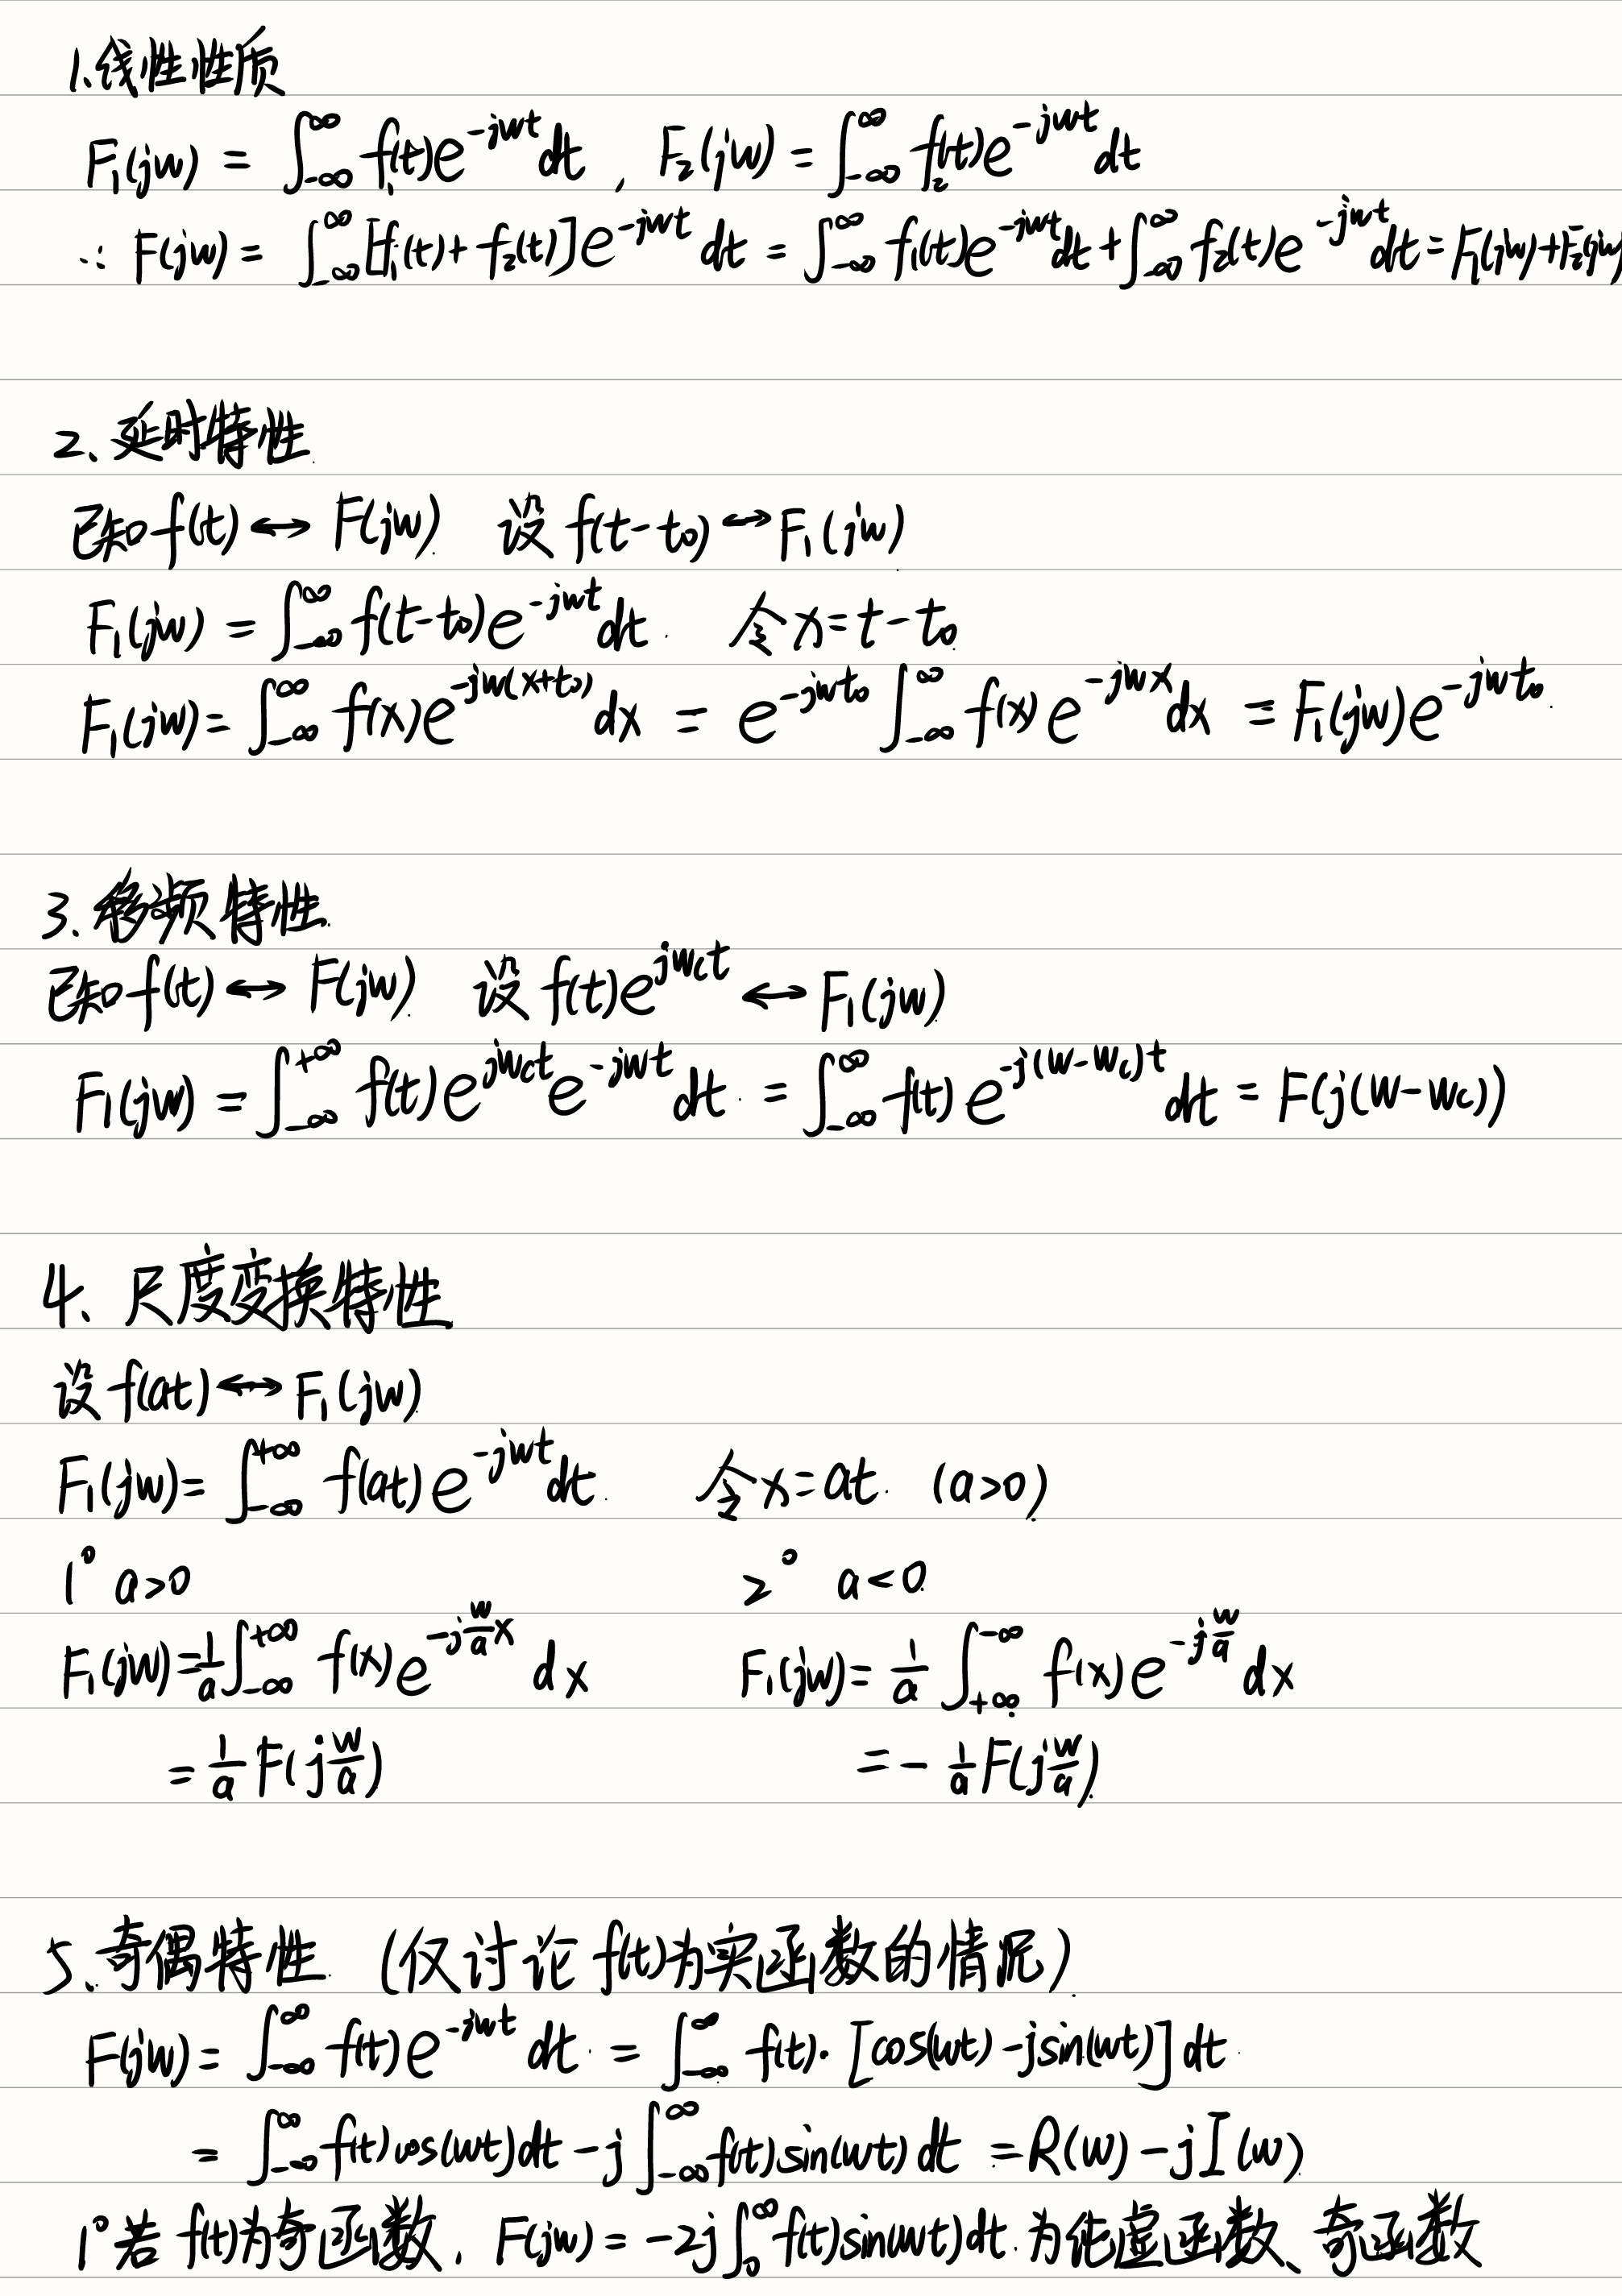 1、线性性质
F₁(jw) = ∫_{-∞}^{∞} f₁(t)e^{-jwt}dt , F₂(jw) = ∫_{-∞}^{∞} f₂(t)e^{-jwt}dt
∴ F(jw) = ∫_{-∞}^{∞} [f₁(t)+f₂(t)]e^{-jwt}dt = ∫_{-∞}^{∞} f₁(t)e^{-jwt}dt + ∫_{-∞}^{∞} f₂(t)e^{-jwt}dt = F₁(jw)+F₂(jw)
2、延时特性
已知f(t) ↔ F(jw) 设 f(t-t₀) ↔ F₁(jw)
F₁(jw) = ∫_{-∞}^{∞} f(t-t₀)e^{-jwt}dt 令x=t-t₀
F₁(jw) = ∫_{-∞}^{∞} f(x)e^{-jw(x+t₀)}dx = e^{-jwt₀} ∫_{-∞}^{∞} f(x)e^{-jwx}dx = F₁(jw)e^{-jwt₀}
3、移频特性
已知f(t) ↔ F(jw) 设 f(t)e^{jw_ct} ↔ F₁(jw)
F₁(jw) = ∫_{-∞}^{+∞} f(t)e^{jw_ct}e^{-jwt}dt = ∫_{-∞}^{∞} f(t)e^{-j(w-w_c)t}dt = F(j(w-w_c))
4、尺度变换特性
设f(at) ↔ F₁(jw)
F₁(jw) = ∫_{-∞}^{+∞} f(at)e^{-jwt}dt 令x=at (a>0)
1° a>0 2° a<0
F₁(jw) = \frac{1}{a}∫_{-∞}^{+∞} f(x)e^{-j\frac{w}{a}x}dx F₁(jw) = \frac{1}{a}∫_{+∞}^{-∞} f(x)e^{-j\frac{w}{a}}dx
= \frac{1}{a}F(j\frac{w}{a}) = -\frac{1}{a}F(j\frac{w}{a})
5、奇偶特性 (仅讨论f(t)为实函数的情况)
F(jw) = ∫_{-∞}^{∞} f(t)e^{-jwt}dt = ∫_{-∞}^{∞} f(t)·[cos(wt)-jsin(wt)]dt
= ∫_{-∞}^{∞} f(t)cos(wt)dt - j∫_{-∞}^{∞} f(t)sin(wt)dt = R(w)-jI(w)
1° 若f(t)为奇函数, F(jw) = -2j∫_{0}^{∞} f(t)sin(wt)dt 为纯虚函数、奇函数